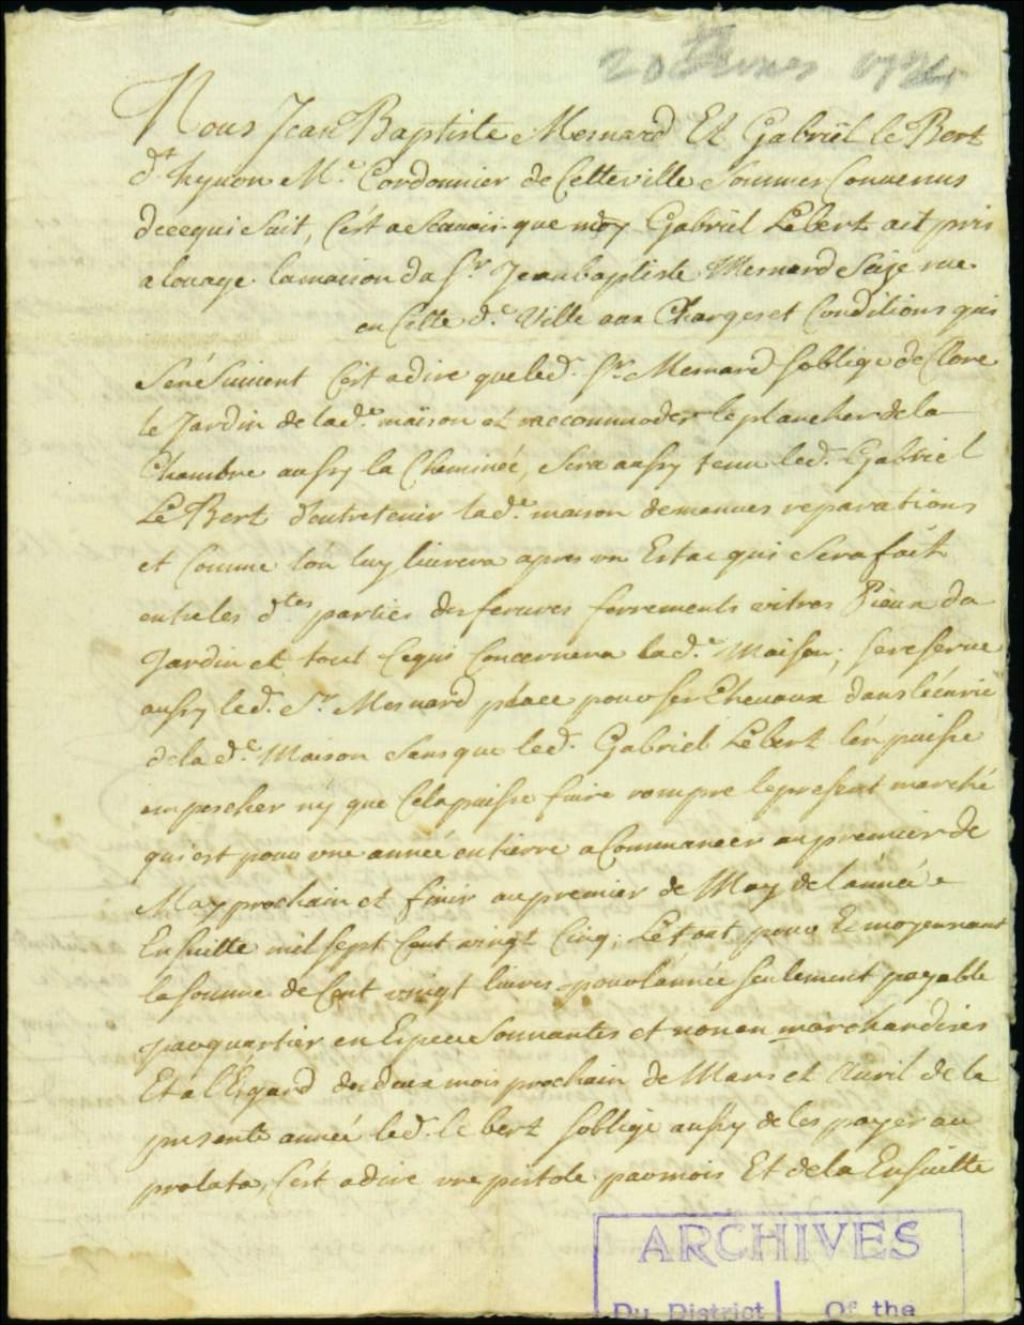 20
Nous Jean Baptiste Mesnard Et Gabriel le Bert
dt hynon Me. Cordonnier de Cette ville Sommes Convenus
dcequi Suit, C'est a Scavoir que moy Gabriel Lebert ait pris
a louage lamaison du Sr. Jean baptiste Mesnard Size rue
en Cette de. Ville aux Charges et Conditions qui
S'en Suivent C'est adire queled. Sr. Mesnard Soblige de Clore
le Jardin de lade. maison et raccommoder le plancher dela
Chambre aussy la Cheminée, Sera aussy tenu led. Gabriel
Le Bert d'entretenir lade. maison demenues reparations
et Comme lon luy livrera apres un Estat qui Sera fait
entre les dtes parties des ferures ferrements vitres Pieux du
Jardin et tout Cequi Concernera lade. Maison, se reserve
aussy led. Sr. Mesnard place pour ses Chevaux dans l'écurie
dela de. Maison Sans que led. Gabriel Lebert l'en puisse
empescher ny que Cela puisse faire rompre lepresent marché
qui est pour une année entierre a Commancer au premier de
May prochain et finir au premier de May de l'année
Ensuitte mil sept Cent vingt Cinq; Le tout pour Et moyennant
la somme de Cent vingt livres pour l'année seulement payable
par quartier en Especes Sonnantes et non en marchandises
Et a l'Egard des deux mois prochain de Mars et Avril de la
presente année led. le bert soblige aussy de les payer au
prolata, C'est adire une pistole par mois Et de la Ensuitte
ARCHIVES
Du District Of the